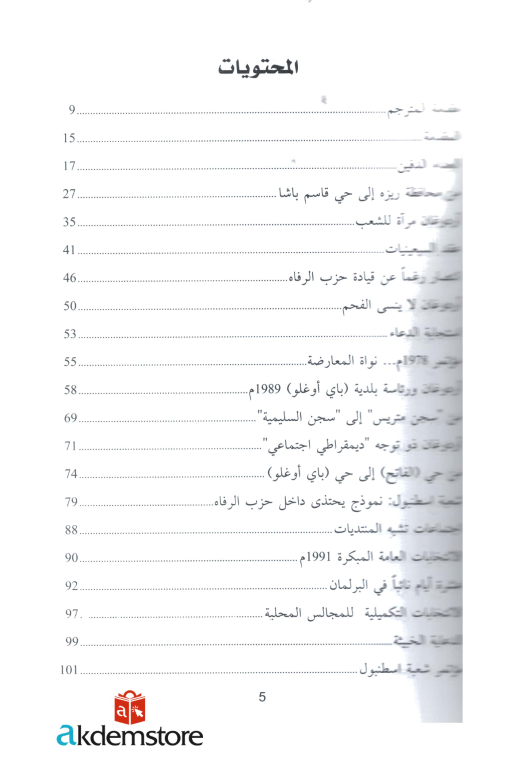 المحتويات
مقدمة المترجم 9
المقدمة 15
الدفين 17
من محافظة ريزه إلى حي قاسم باشا 27
أردوغان مرآة للشعب 35
عقد السبعينيات 41
انتصار رغماً عن قيادة حزب الرفاه 46
أردوغان لا ينسى الفحم 50
استجابة الدعاء 53
مؤتمر 1978م... نواة المعارضة 55
أردوغان ورئاسة بلدية (باي أوغلو) 1989م 58
من "سجن متريس" إلى "سجن السليمية" 69
أردوغان ذو توجه "ديمقراطي اجتماعي" 71
من حي (الفاتح) إلى حي (باي أوغلو) 74
شعبة اسطنبول: نموذج يحتذى داخل حزب الرفاه 79
اجتماعات تشبه المنتديات 88
الانتخابات العامة المبكرة 1991م 90
عشرة أيام نائباً في البرلمان 92
الانتخابات التكميلية للمجالس المحلية 97
الدعاية الخبيثة 99
مؤتمر شعبة اسطنبول 101
5
akdemstore